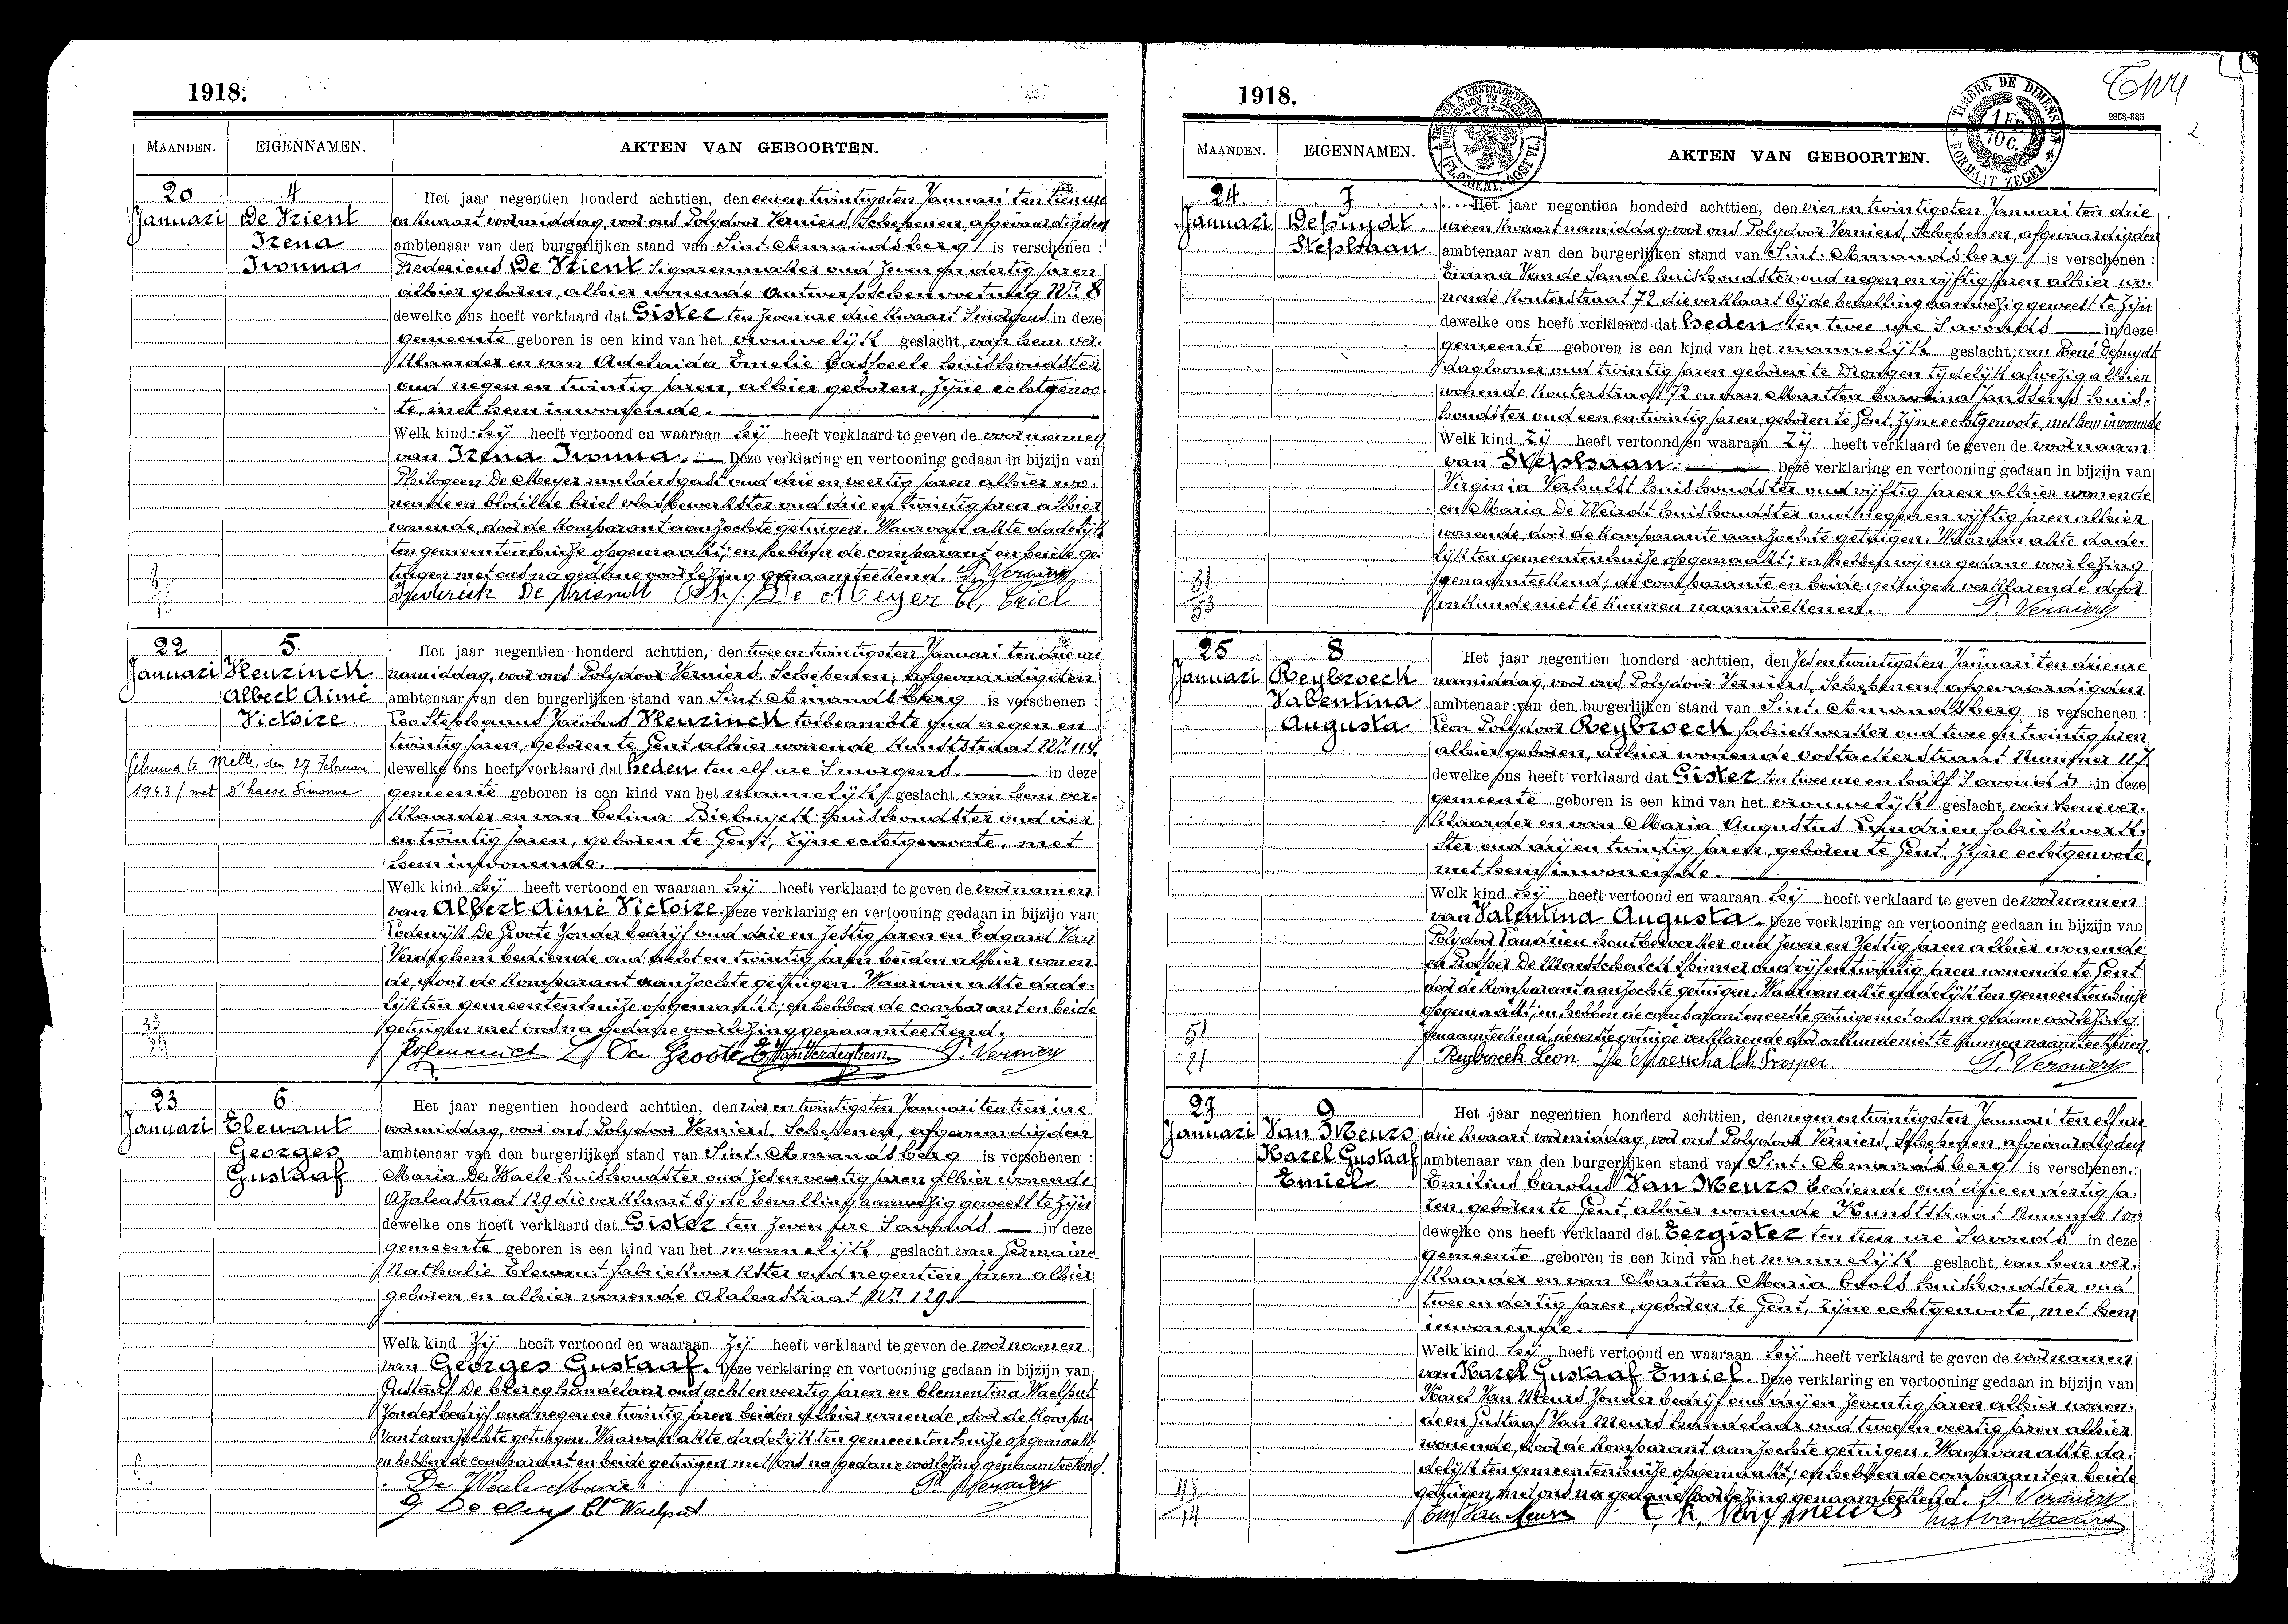 1918.
MAANDEN. EIGENNAMEN. AKTEN VAN GEBOORTEN.
20 4 Het jaar negentien honderd achttien, den een en twintigsten Januari ten tien ure
Januari De Vrient en kwaart voormiddag, voor ons Polydoor Verniers, Schepenen, afgevaardigden
Irena ambtenaar van den burgerlijken stand van Sint-Amandsberg is verschenen :
Ivonna Fredericus De Vrient Sigarenmaker oud zeven en dertig jaren
alhier geboren, alhier wonende Antwerpschen voetweg Nr. 8
dewelke ons heeft verklaard dat Gister ten zeven ure drie kwaart Smorgens in deze
gemeente geboren is een kind van het vrouwelijk geslacht, van hem ver-
klaarder en van Adelaida Emelie huishoudster
oud negen en twintig jaren, alhier geboren, zijne echtgenoo-
te, met hem inwonende.
Welk kind hij heeft vertoond en waaraan hij heeft verklaard te geven de voornamen
van Irena Ivonna. Deze verklaring en vertooning gedaan in bijzijn van
Philogeen De Meyer muldersgast oud drie en veertig jaren alhier wo-
nende en Clotilde Criel vlasbewerkster oud drie en twintig jaren alhier
wonende, door de komparant aanzochte getuigen. Waarvan akte dadelijk
ten gemeentenhuize opgemaakt; en hebben de comparant en beide ge-
tuigen met ons na gedane voorlezing genaamteekend. P. Verniers
Frederick De Vriendt Ph. De Meyer Cl. Criel
22 5. Het jaar negentien honderd achttien, den twee en twintigsten Januari ten drie ure
Januari namiddag, voor ons Polydoor Verniers, Schepenen, afgevaardigden
Albert Aimé ambtenaar van den burgerlijken stand van Sint-Amandsberg is verschenen :
Victoire Leo Stephanus Jacobus tolbeambte oud negen en
twintig jaren, geboren te Gent, alhier wonende Kunststraat Nr. 114
Gehuwd te Melle, den 27 Februari dewelke ons heeft verklaard dat heden ten elf ure Smorgens in deze
1943 met D'haese Simonne gemeente geboren is een kind van het mannelijk geslacht, van hem ver-
klaarder en van Celina huishoudster oud vier
en twintig jaren, geboren te Gent, zijne echtgenoote, met
hem inwonende.
Welk kind hij heeft vertoond en waaraan hij heeft verklaard te geven de voornamen
van Albert Aimé Victoire. Deze verklaring en vertooning gedaan in bijzijn van
Lodewijk De Groote zonder bedrijf oud drie en zestig jaren en Edgard Van
Verdeghem bediende oud acht en twintig jaren beiden alhier wonen-
de, door de komparant aanzochte getuigen. Waarvan akte dade-
lijk ten gemeentenhuize opgemaakt; en hebben de comparant en beide
getuigen met ons na gedane voorlezing genaamteekend.
L. De Groote E. Van Verdeghem P. Verniers
23 6. Het jaar negentien honderd achttien, den vier en twintigsten Januari ten tien ure
Januari voormiddag, voor ons Polydoor Verniers, Schepenen, afgevaardigden
Georges ambtenaar van den burgerlijken stand van Sint-Amandsberg is verschenen :
Gustaaf Maria De Waele huishoudster oud zes en veertig jaren alhier wonende
Azaleastraat 129 die verklaart bij de bevalling aanwezig geweest te zijn
dewelke ons heeft verklaard dat Gister ten zeven ure Savonds in deze
gemeente geboren is een kind van het mannelijk geslacht van Germaine
Nathalie fabriekwerkster oud negentien jaren alhier
geboren en alhier wonende Azaleastraat Nr. 129
Welk kind Zij heeft vertoond en waaraan Zij heeft verklaard te geven de voornamen
van Georges Gustaaf. Deze verklaring en vertooning gedaan in bijzijn van
Gustaaf De Clercq handelaar oud acht en veertig jaren en Clementina Waelput
zonder bedrijf oud negen en twintig jaren beiden alhier wonende, door de kompa-
rant aanzochte getuigen. Waarvan akte dadelijk ten gemeentenhuize opgemaakt
en hebben de comparant en beide getuigen met ons na gedane voorlezing genaamteekend.
De Waele Maria P. Verniers
G De Clercq Cl. Waelput
1918.
TIMBRE DE DIMENSION
1 FR. 10 C.
FORMAAT ZEGEL
2853-335
2
MAANDEN. EIGENNAMEN. AKTEN VAN GEBOORTEN.
24 7 Het jaar negentien honderd achttien, den vier en twintigsten Januari ten drie
Januari Depuydt ure en kwaart namiddag, voor ons Polydoor Verniers, Schepenen, afgevaardigden
Stephaan ambtenaar van den burgerlijken stand van Sint-Amandsberg is verschenen :
Emma Van de Sande huishoudster oud negen en vijftig jaren alhier wo-
nende Kouterstraat 72 die verklaart bij de bevalling aanwezig geweest te zijn
dewelke ons heeft verklaard dat heden ten twee ure Savonds in deze
gemeente geboren is een kind van het mannelijk geslacht; van René Depuydt
daglooner oud twintig jaren geboren te Drongen tijdelijk afwezig alhier
wonende Kouterstraat 72 en van Martha Carolina Janssens huis-
houdster oud een en twintig jaren, geboren te Gent, zijne echtgenoote, met hem inwonende
Welk kind Zij heeft vertoond en waaraan Zij heeft verklaard te geven de voornaam
van Stephaan. Deze verklaring en vertooning gedaan in bijzijn van
Virginia Verhulst huishoudster oud vijftig jaren alhier wonende
en Maria De Weirdt huishoudster oud negen en vijftig jaren alhier
wonende door de komparante aanzochte getuigen. Waarvan akte dade-
lijk ten gemeentenhuize opgemaakt; en hebben wij na gedane voorlezing
genaamteekend; de comparante en beide getuigen verklarende door
onkunde niet te kunnen naamteekenen. P. Verniers
25 8 Het jaar negentien honderd achttien, den zes en twintigsten Januari ten drie ure
Januari Reybroeck namiddag, voor ons Polydoor Verniers, Schepenen afgevaardigden
Valentina ambtenaar van den burgerlijken stand van Sint-Amandsberg is verschenen :
Augusta Leon Polydoor Reybroeck fabriekwerker oud twee en twintig jaren
alhier geboren, alhier wonende Oostackerstraat Nummer 117
dewelke ons heeft verklaard dat Gister ten twee ure en half Savonds in deze
gemeente geboren is een kind van het vrouwelijk geslacht, van hem ver-
klaarder en van Maria Augustus fabriekwerk-
ster oud drij en twintig jaren, geboren te Gent, zijne echtgenoote,
met hem inwonende.
Welk kind hij heeft vertoond en waaraan hij heeft verklaard te geven de voornamen
van Valentina Augusta. Deze verklaring en vertooning gedaan in bijzijn van
Polydoor houtbewerker oud zeven en zestig jaren alhier wonende
en Prosper De Maesschalck spinner oud vijf en twintig jaren wonende te Gent
door de komparant aanzochte getuigen. Waarvan akte dadelijk ten gemeentenhuize
opgemaakt; en hebben de comparant en eerste getuige met ons na gedane voorlezing
genaamteekend, de eerste getuige verklarende door onkunde niet te kunnen naamteekenen.
Reybroeck Leon De Maesschalck Prosper P. Verniers
27 9 Het jaar negentien honderd achttien, den negen en twintigsten Januari ten elf ure
Januari Van Meurs drie kwaart voormiddag, voor ons Polydoor Verniers, Schepenen afgevaardigden
Karel Gustaaf ambtenaar van den burgerlijken stand van Sint-Amandsberg is verschenen :
Emiel Emilius Carolus Van Meurs bediende oud drie en dertig ja-
ren, geboren te Gent, alhier wonende Kunststraat Nummer
dewelke ons heeft verklaard dat Eergister ten tien ure Savonds in deze
gemeente geboren is een kind van het mannelijk geslacht, van hem ver-
klaarder en van Martha Maria Cools huishoudster oud
twee en dertig jaren, geboren te Gent, zijne echtgenoote, met hem
inwonende.
Welk kind hij heeft vertoond en waaraan hij heeft verklaard te geven de voornamen
van Karel Gustaaf Emiel. Deze verklaring en vertooning gedaan in bijzijn van
Karel Van Meurs zonder bedrijf oud drij en zeventig jaren alhier wonen-
de en Gustaaf Van Meurs handelaar oud twee en veertig jaren alhier
wonende, door de komparant aanzochte getuigen. Waarvan akte da-
delijk ten gemeentenhuize opgemaakt; en hebben de comparant en beide
getuigen met ons na gedane voorlezing genaamteekend. P. Verniers
Em Van Meurs Van Meurs Gust Van Meurs